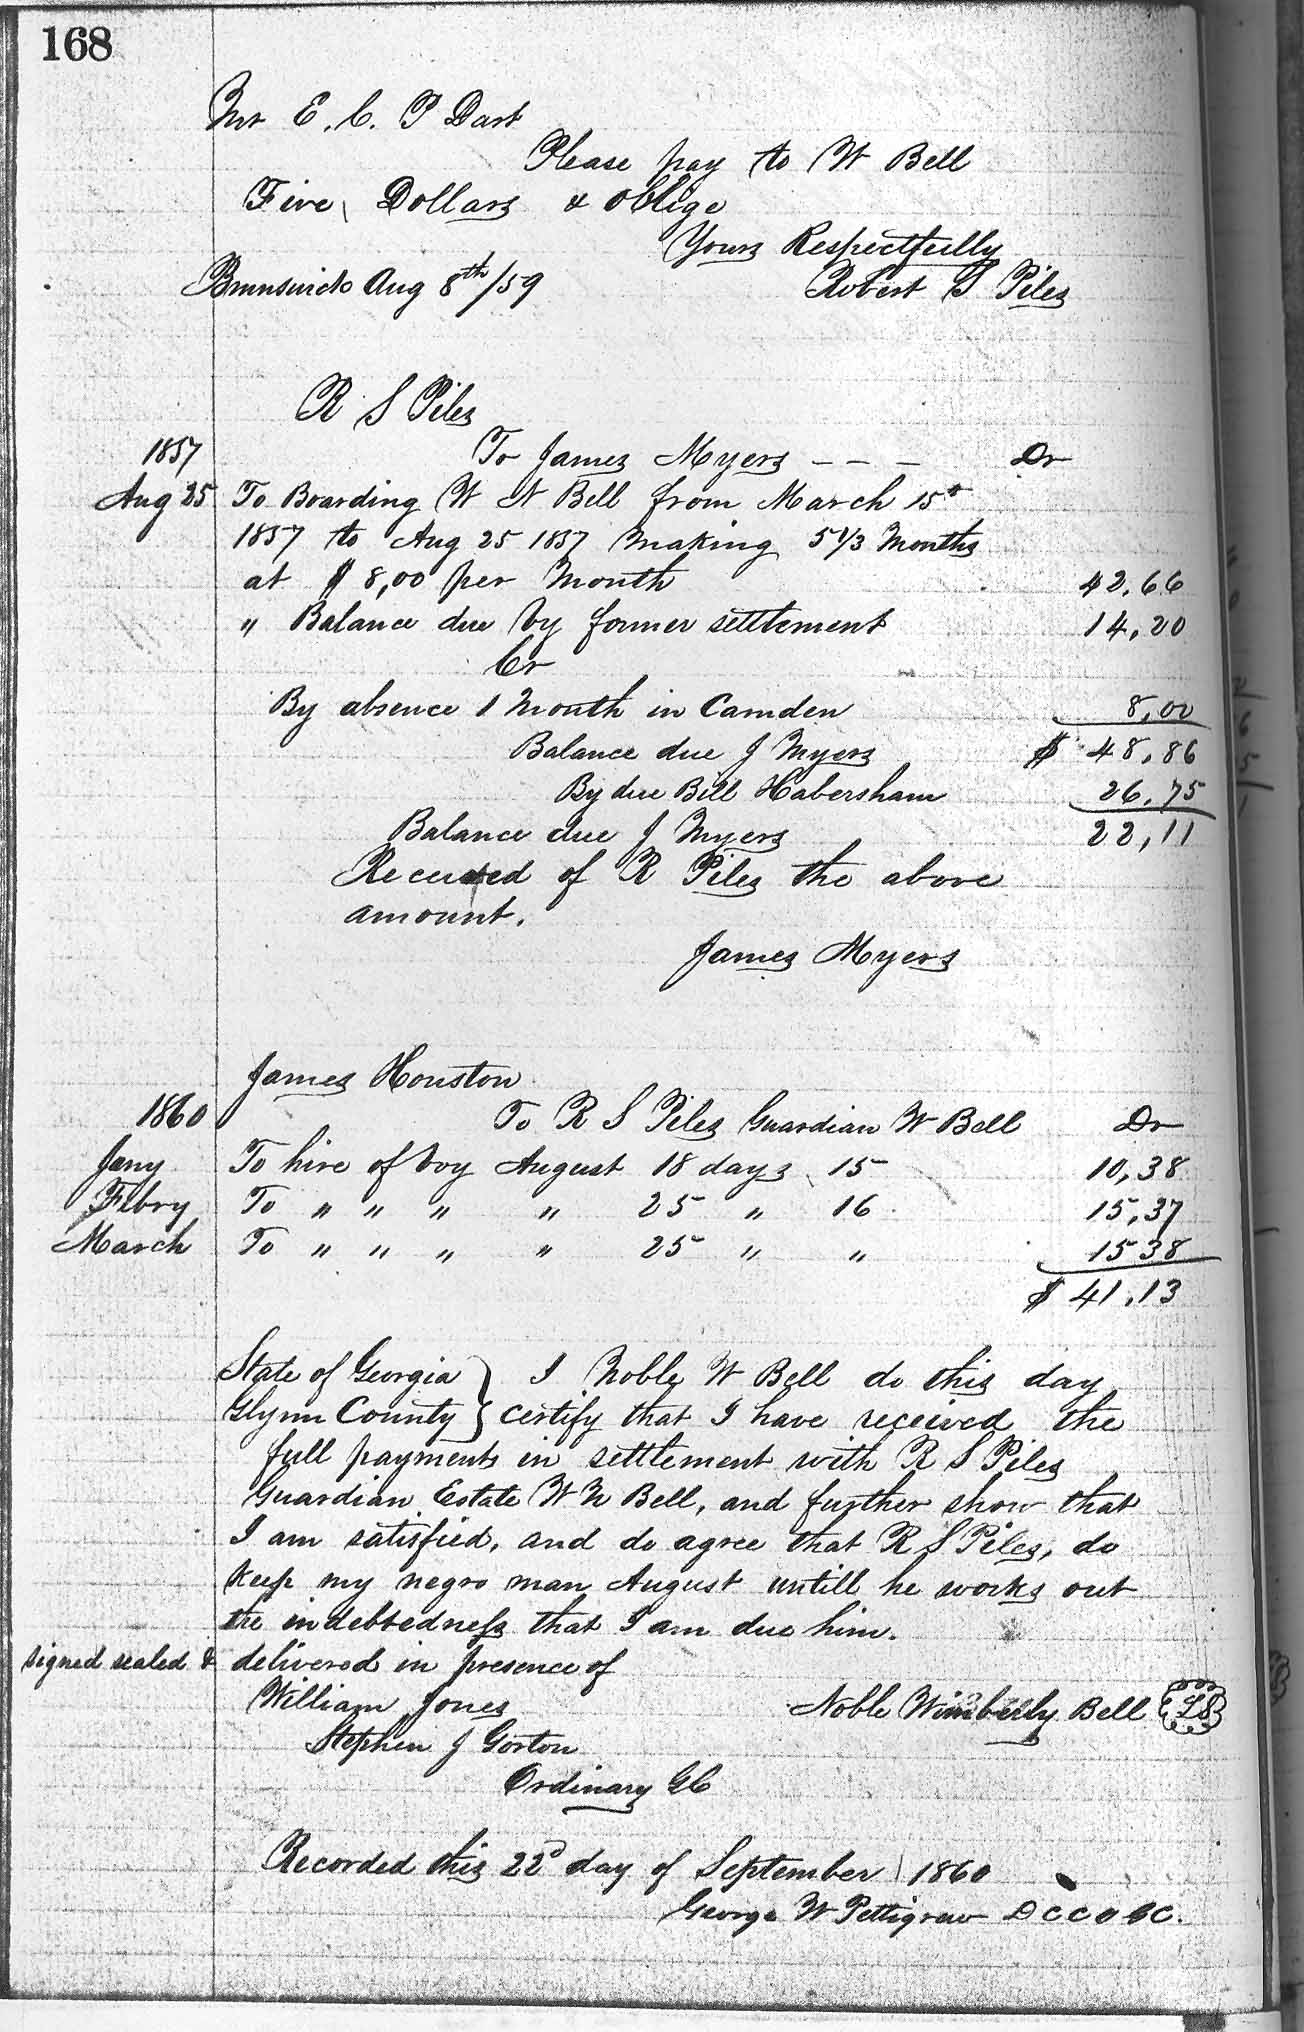 168
Mr E. C. P Dart
Please pay to W Bell
Five Dollars & oblige
Yours Respectfully
Brunswick Aug 8th/59 Robert S Piles
R S Piles
1857 To James Myers - - - Dr
Aug 25 To Boarding W N Bell from March 15th
1857 to Aug 25 1857 making 5 1/3 Months
at $ 8,00 per Month 42,66
" Balance due by former settlement 14,20
Cr
By absence 1 Month in Camden 8,00
Balance due J Myers $ 48,86
By due Bill Habersham 26,75
Balance due J Myers 22,11
Received of R Piles the above
amount.
James Myers
James Houston
1860 To R S Piles Guardian W Bell Dr
Jany To hire of boy August 18 days 15 10,38
Febry To " " " " 25 " 16 15,37
March To " " " " 25 " " 15 38
$ 41,13
State of Georgia } I Noble W Bell do this day
Glynn County } certify that I have received the
full payments in settlement with R S Piles
Guardian Estate W N Bell, and further show that
I am satisfied, and do agree that R S Piles, do
keep my negro man August untill he works out
the indebtedness that I am due him.
signed sealed & delivered in presence of
William Jones Noble Wimberly Bell LS
Stephen J Gorton
Ordinary GC
Recorded this 22d day of September 1860
George W Pettigrew D C C O G C.